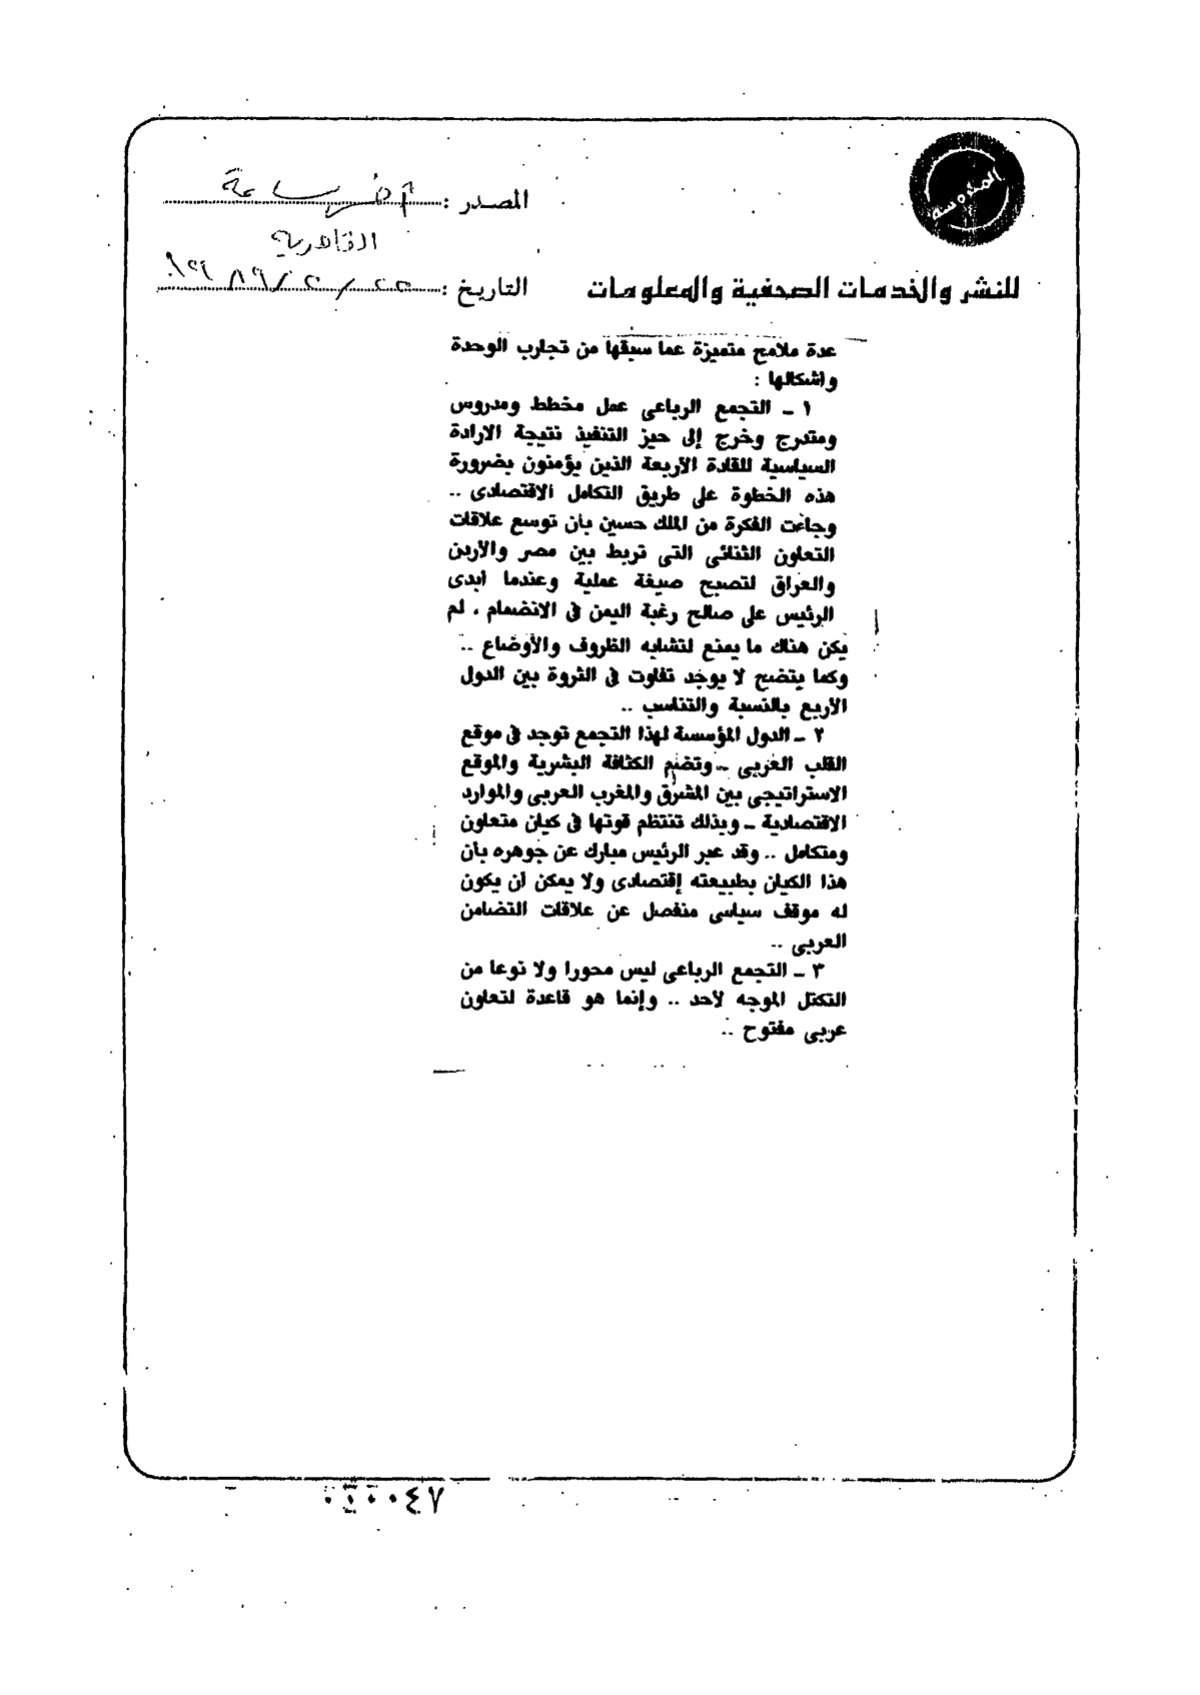 المحروسة
المصدر : آخر ساعة
القاهرية
للنشر والخدمات الصحفية والمعلومات
التاريخ : ٢٢ / ٢ / ١٩٨٩
عدة ملامح متميزة عما سبقها من تجارب الوحدة
واشكالها :
١ ـ التجمع الرباعى عمل مخطط ومدروس
ومتدرج وخرج إلى حيز التنفيذ نتيجة الارادة
السياسية للقادة الأربعة الذين يؤمنون بضرورة
هذه الخطوة على طريق التكامل الاقتصادى ..
وجاءت الفكرة من الملك حسين بأن توسع علاقات
التعاون الثنائى التى تربط بين مصر والأردن
والعراق لتصبح صيغة عملية وعندما أبدى
الرئيس على صالح رغبة اليمن فى الانضمام ، لم
يكن هناك ما يمنع لتشابه الظروف والأوضاع ..
وكما يتضح لا يوجد تفاوت فى الثروة بين الدول
الأربع بالنسبة والتناسب ..
٢ ـ الدول المؤسسة لهذا التجمع توجد فى موقع
القلب العربى ـ وتضم الكثافة البشرية والموقع
الاستراتيجى بين المشرق والمغرب العربى والموارد
الاقتصادية ـ وبذلك تنتظم قوتها فى كيان متعاون
ومتكامل .. وقد عبر الرئيس مبارك عن جوهره بأن
هذا الكيان بطبيعته إقتصادى ولا يمكن أن يكون
له موقف سياسى منفصل عن علاقات التضامن
العربى ..
٣ ـ التجمع الرباعى ليس محورا ولا نوعا من
التكتل الموجه لأحد .. وإنما هو قاعدة لتعاون
عربى مفتوح ..